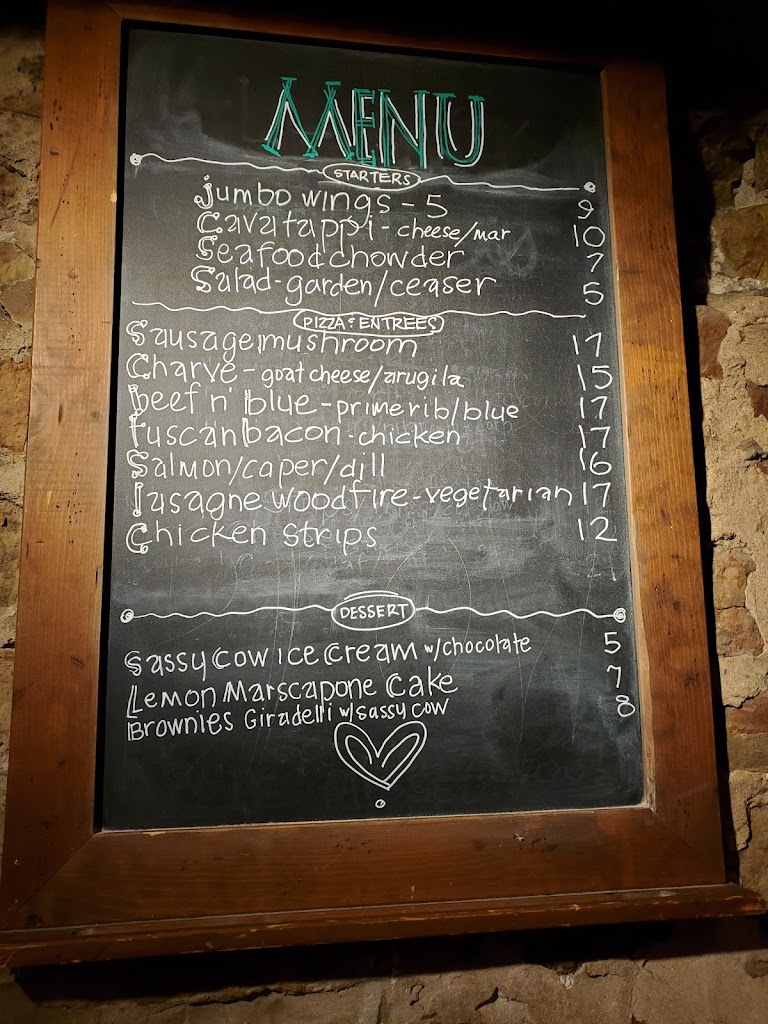 MENU
STARTERS
Jumbo wings - 5 9
Cavatappi - cheese/mar 10
Seafood chowder 7
Salad - garden/ceaser 5
PIZZA & ENTREES
Sausage mushroom 17
Charve - goat cheese/arugila 15
beef n' blue - prime rib/blue 17
Tuscan bacon - chicken 17
Salmon/caper/dill 16
lasagne woodfire - vegetarian 17
Chicken strips 12
21
DESSERT
Sassy Cow Ice Cream w/chocolate 5
Lemon Marscapone Cake 7
Brownies Giradelli w/sassy cow 8